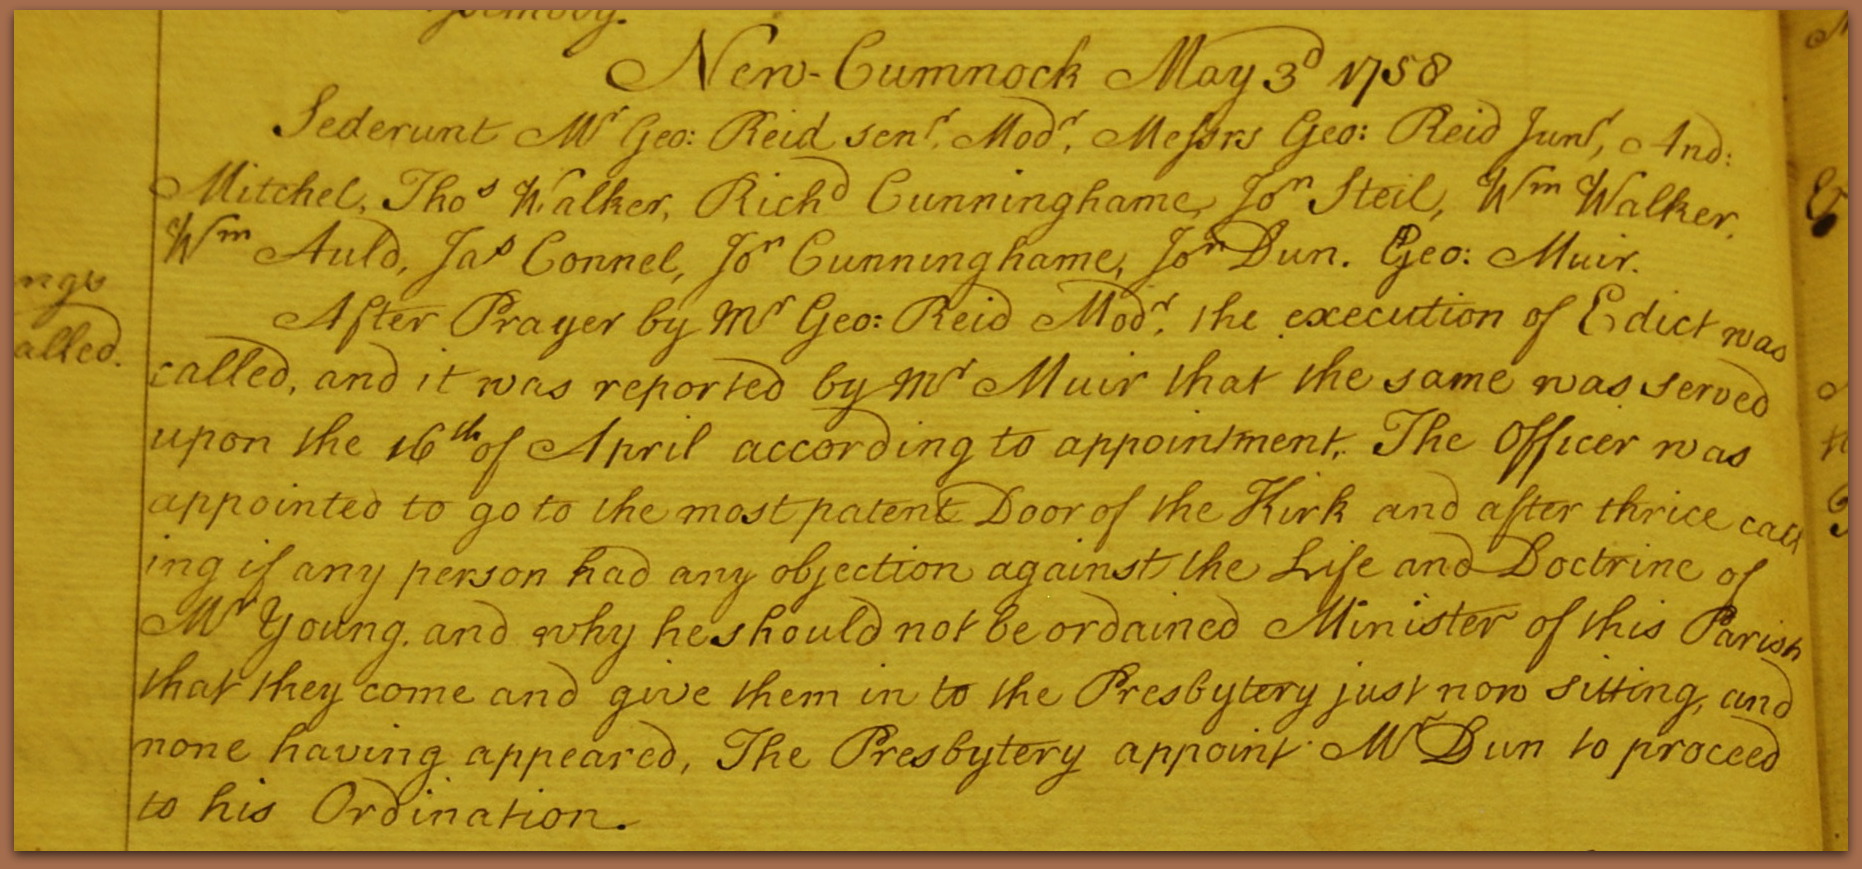 New-Cumnock May 3d 1758
Sederunt Mr Geo: Reid senr. Modr, Messrs Geo: Reid Junr, And:
Mitchel, Thos Walker, Richd Cunninghame, Jon Steil, Wm Walker,
Wm Auld, Jas Connel, Jon Cunninghame, Jon Dun. Geo: Muir.
After Prayer by Mr Geo: Reid Modr, the execution of Edict was
called, and it was reported by Mr Muir that the same was served
upon the 16th of April according to appointment. The Officer was
appointed to go to the most patent Door of the Kirk and after thrice call
ing if any person had any objection against the Life and Doctrine of
Mr Young, and why he should not be ordained Minister of this Parish
that they come and give them in to the Presbytery just now sitting, and
none having appeared, The Presbytery appoint Mr Dun to proceed
to his Ordination.